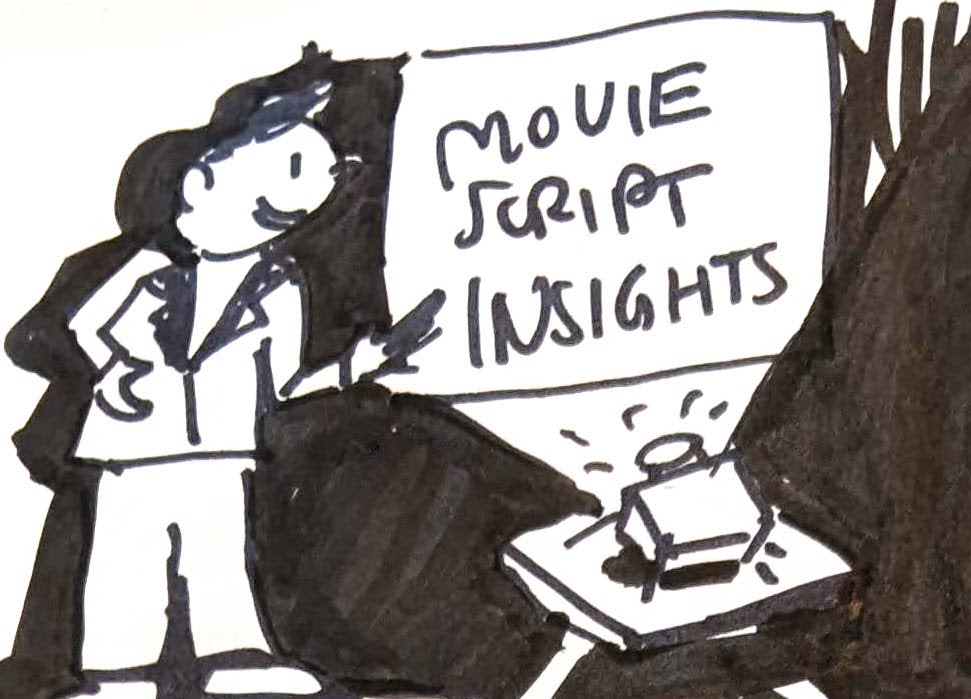 MOVIE
SCRIPT
INSIGHTS